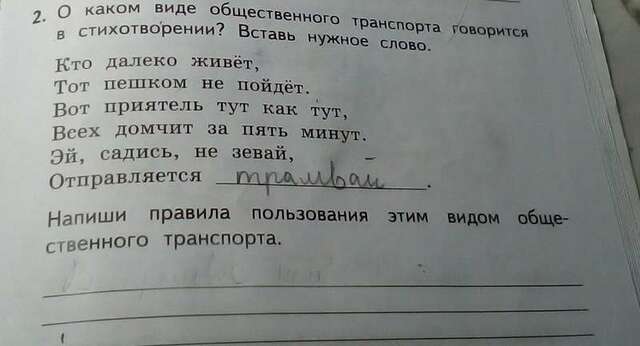 2. О каком виде общественного транспорта говорится
в стихотворении? Вставь нужное слово.
Кто далеко живёт,
Тот пешком не пойдёт.
Вот приятель тут как тут,
Всех домчит за пять минут.
Эй, садись, не зевай,
Отправляется трамвай.
Напиши правила пользования этим видом обще-
ственного транспорта.